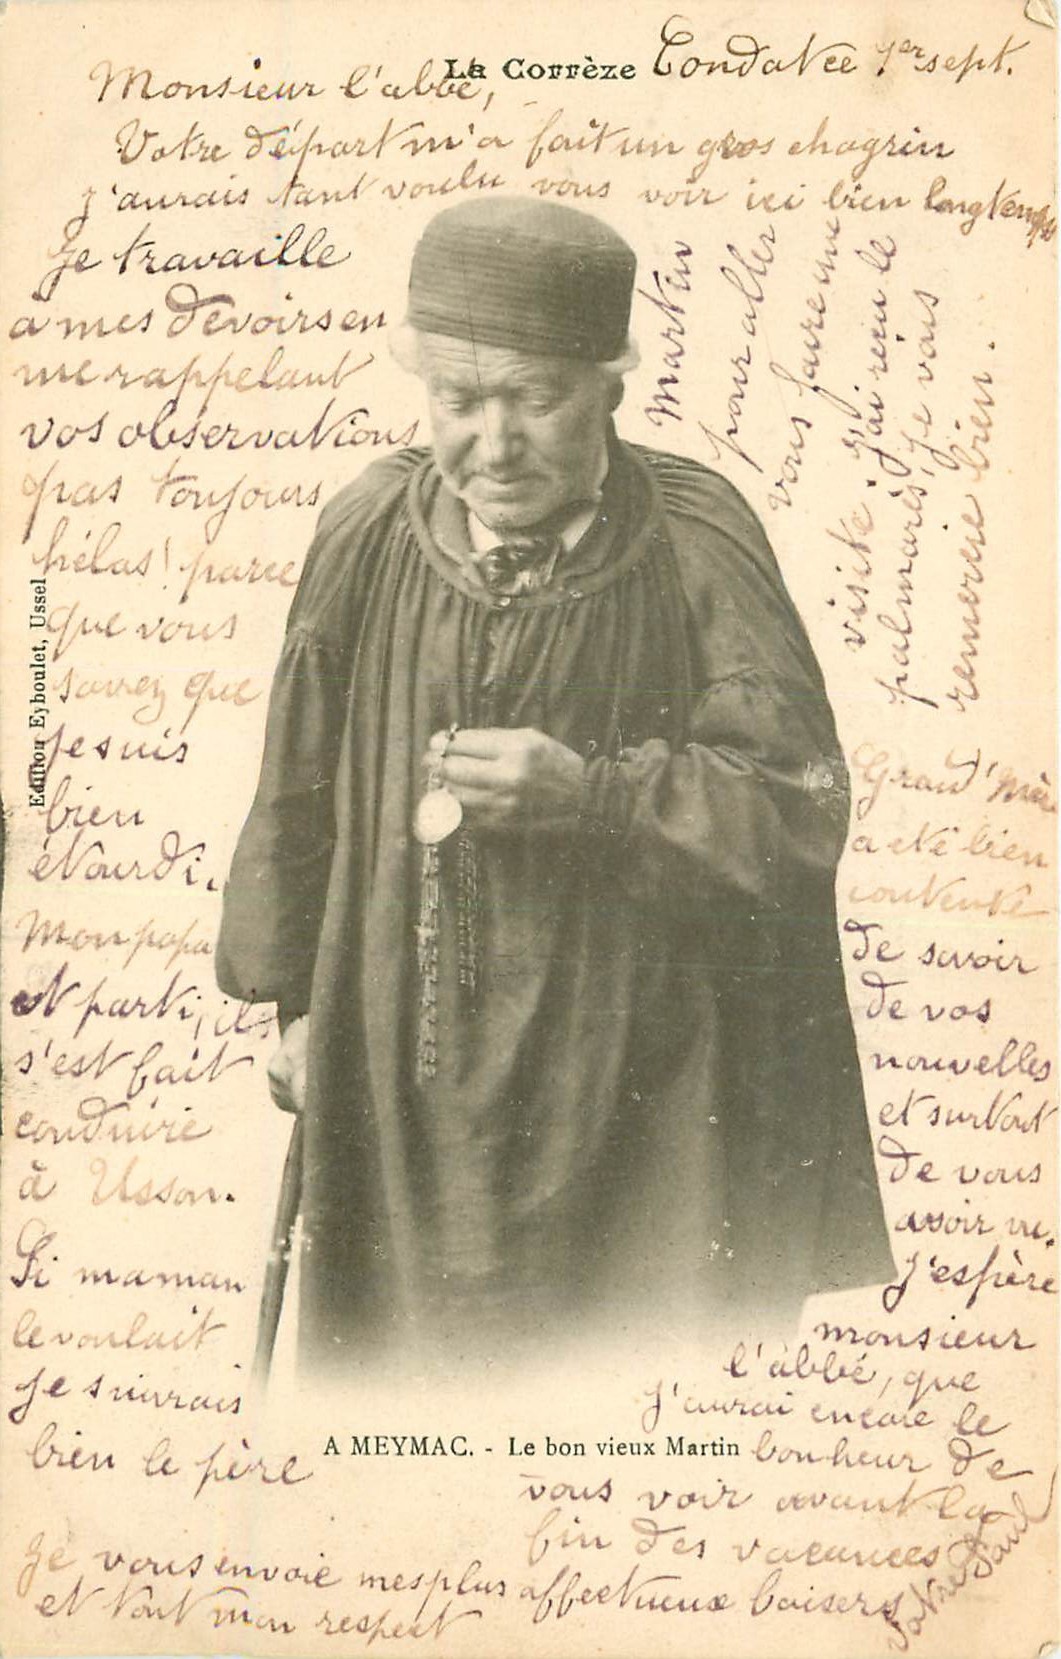 La Corrèze
Condat ce 1er sept.
Monsieur l'abbé,
Votre départ m'a fait un gros chagrin
j'aurais tant voulu vous voir ici bien longtemps
Je travaille
à mes devoirs en
me rappelant
vos observations
pas toujours
hélas! parce
que vous
savez que
je suis
bien
étourdi.
Mon papa
est parti, ils
s'est fait
conduire
à Usson.
Si maman
le voulait
je suivrais
bien le père
Martin
pour aller
vous faire une
visite. J'ai reçu le
palmarès, je vous
remercie bien.
Grand'Mère
a été bien
contente
de savoir
de vos
nouvelles
et surtout
de vous
avoir vu.
J'espère
monsieur
l'abbé, que
j'aurai encore le
bonheur de
vous voir avant la
fin des vacances
Je vous envoie mes plus affectueux baisers
et tout mon respect
Votre Paul
A MEYMAC. - Le bon vieux Martin
Edition Eyboulet, Ussel